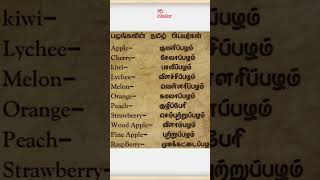 பழங்களின் தமிழ் பெயர்கள்
Apple– குமளிப்பழம்
Cherry– சேலாப்பழம்
kiwi– பசலிப்பழம்
Lychee– விளச்சிப்பழம்
Melon– வெள்ளரிப்பழம்
Orange– கமலாப்பழம்
Peach– குழிப்பேரி
Strawberry– செம்புற்றுப்பழம்
Wood Apple– விளாம்பழம்
Pine Apple– புற்றுப்பழம்
RaspBerry–
kiwi–
Lychee–
Melon–
Orange–
Peach–
Strawberry–